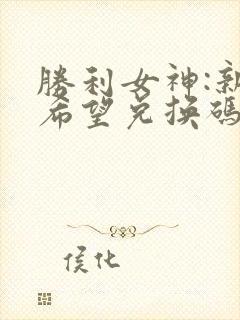 勝利女神:新
希望兑换碼
侯化